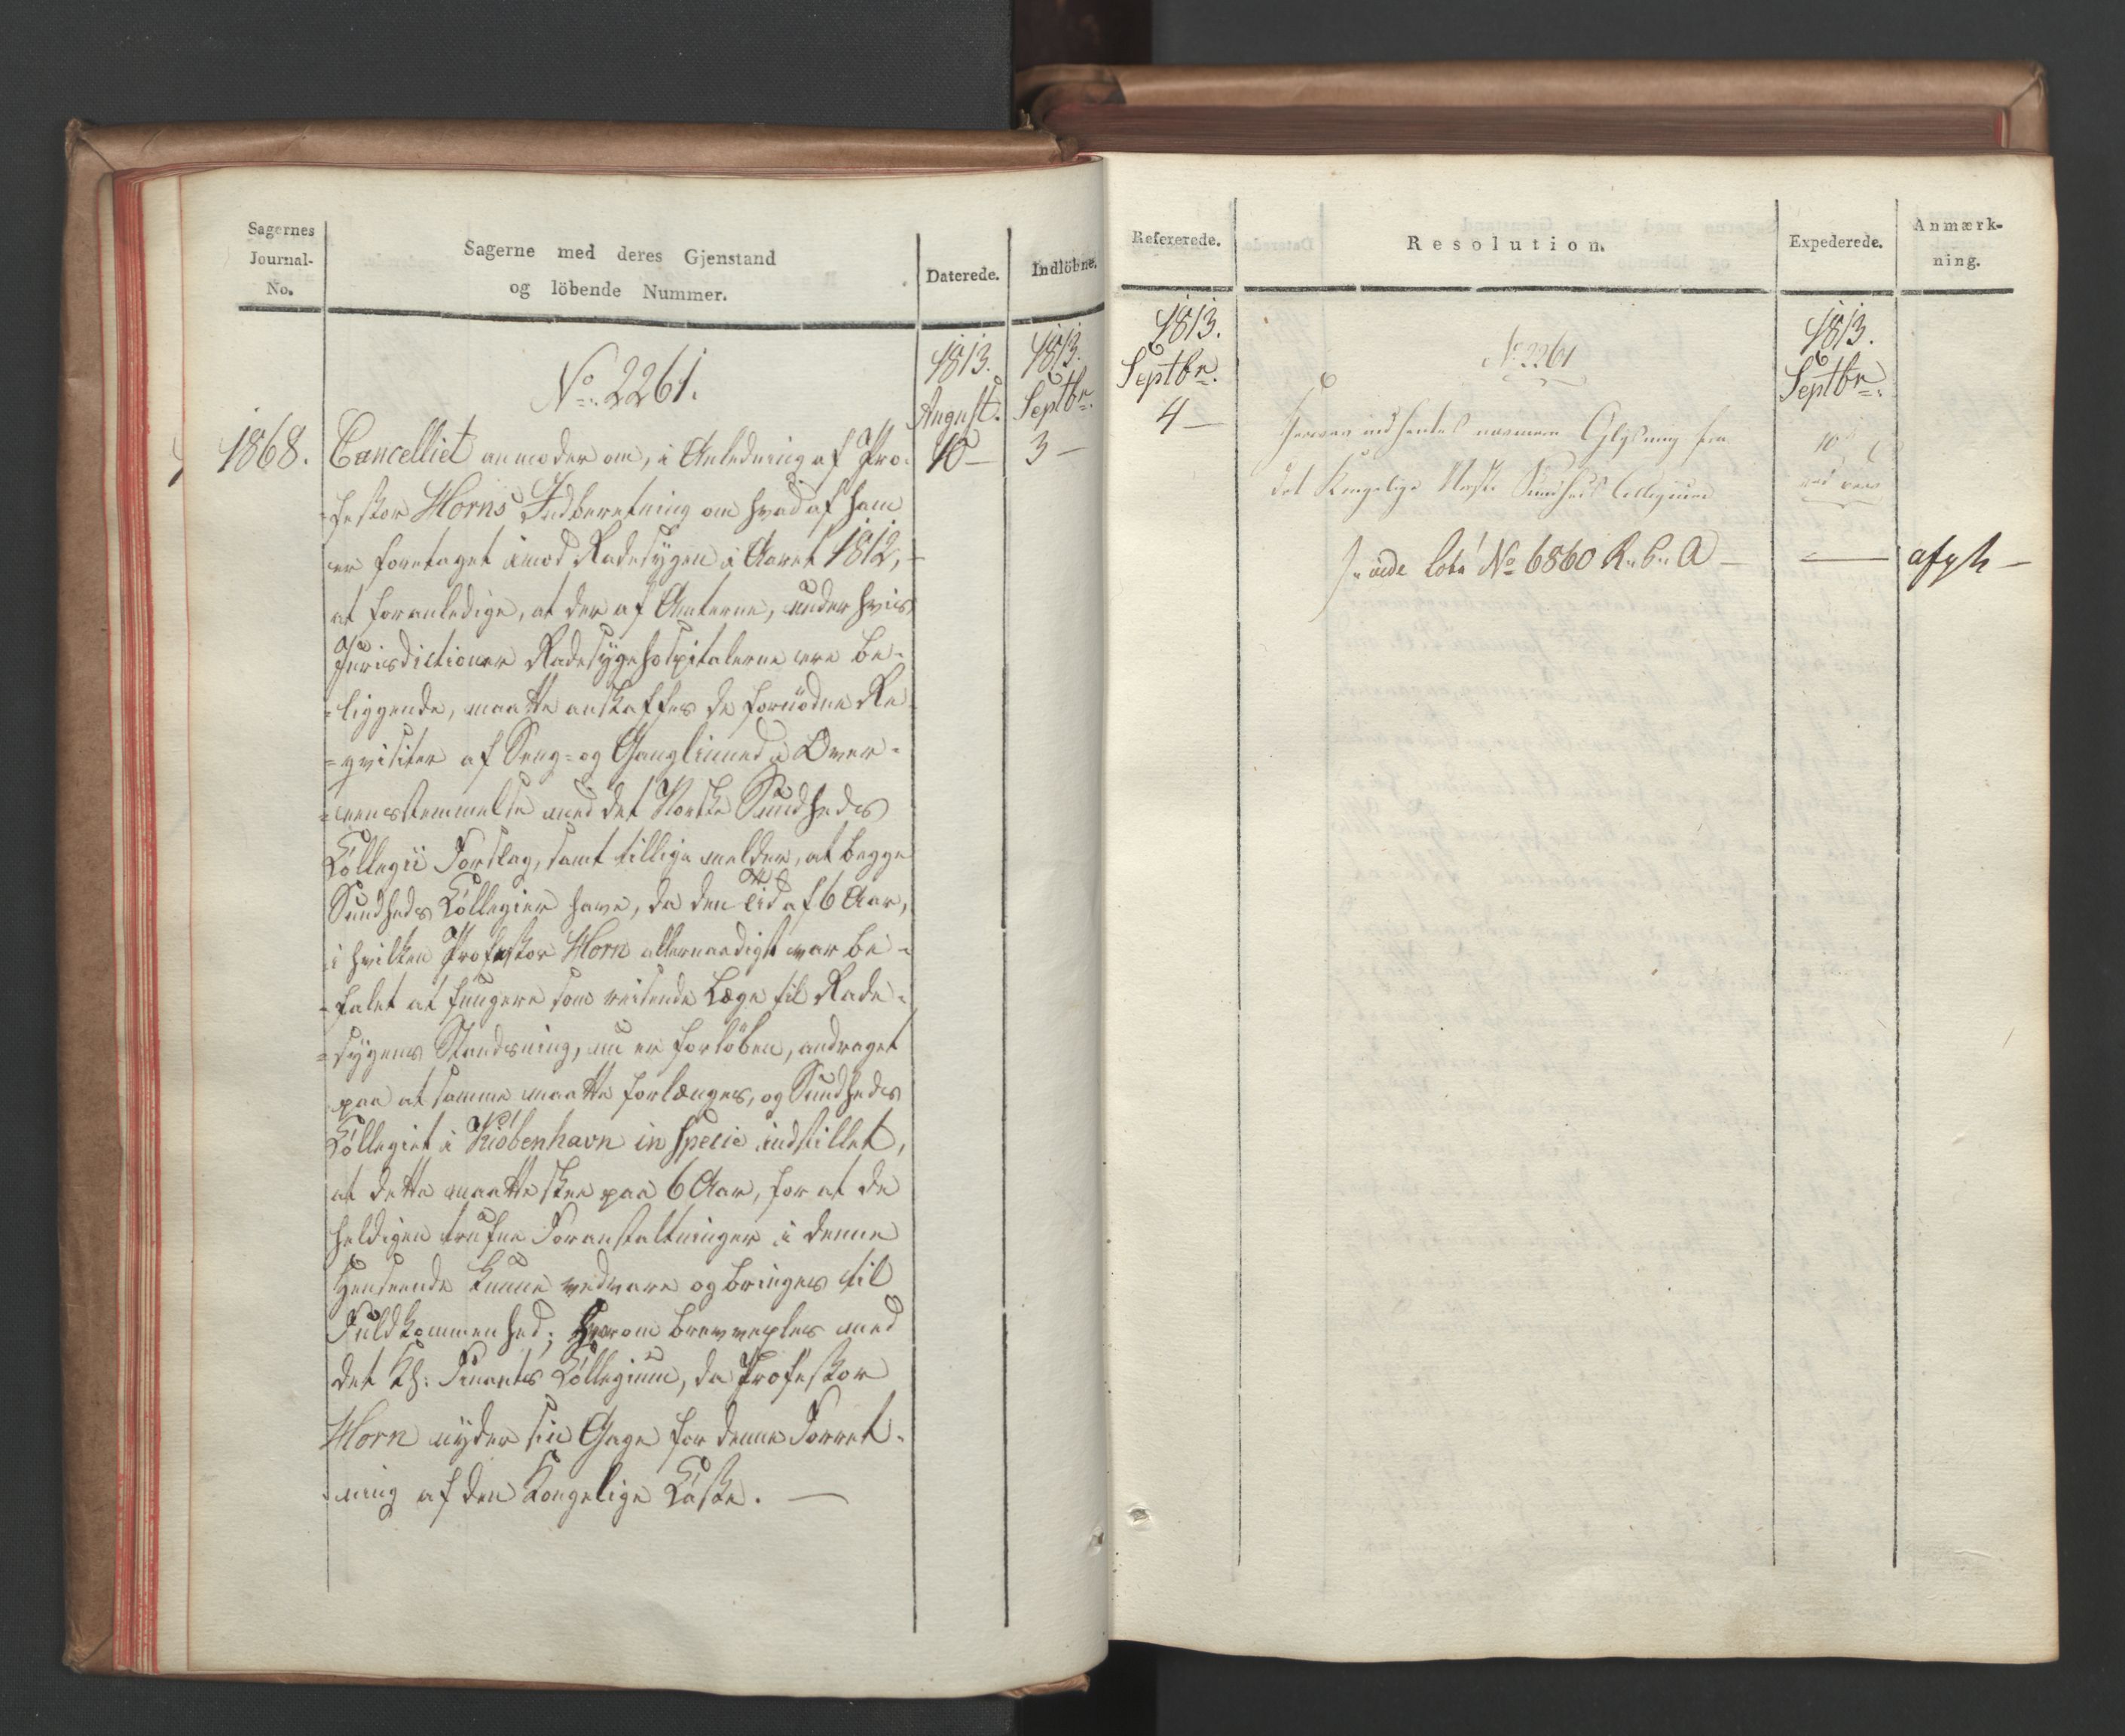 Sagernes
Journal-
No.
Sagerne med deres Gjenstand
og löbende Nummer.
Daterede.
Indlöbne.
1813.
August.
10 —
1813.
Septbr.
3 —
No. 2261.
1868. Cancelliet anmoder om, i Anledning af Pro-
-fessor Horns Indberetning om hvad af ham
er foretaget imod Radesygen i Aaret 1812,
at foranledige, at der af Amterne, under hvis
Jurisdictioner Radesygehospitalerne ere be-
-liggende, maatte anskaffes de fornödne Re-
-qvisiter af Seng- og Ganglinned i Over-
-eensstemmelse med det Norske Sundheds
Collegii Forslag, samt tillige melder, at begge
Sundheds Collegier have, da den Tid af 6 Aar,
i hvilken Professor Horn allernaadigst var be-
-falet at fungere som reisende Læge til Rade-
-sygens Standsning, nu er forlöben, andraget
paa at samme maatte forlænges, og Sundheds
Collegiet i Kiöbenhavn in specie indstillet,
at dette maatte skee paa 6 Aar, for at de
heldigen trufne Foranstaltninger i denne
Henseende kunne vedvare og bringes til
Fuldkommenhed; hvorom brevvexles med
det Kg: Finants Collegium, da Professor
Horn nyder sin Gage for denne Forret-
-ning af den Kongelige Casse. —
Refererede.
Resolution.
Expederede.
Anmærk-
ning.
1813.
Septbr.
4 —
No 2261
Herover indhentes nærmere Oplysning fra
det Kongelige Norske Sundheds Collegium
vide No 6860 R. C. A —
1813.
Septbr.
10
afgk —